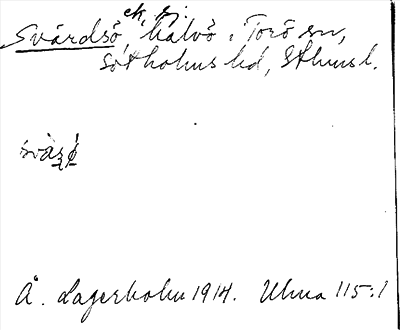 ek, sj.
Svärdsö halvö i Torö sn,
Sotholms hd, Sthms l.
svàʂö́
Å. Lagerholm 1914. Ulma 115:1